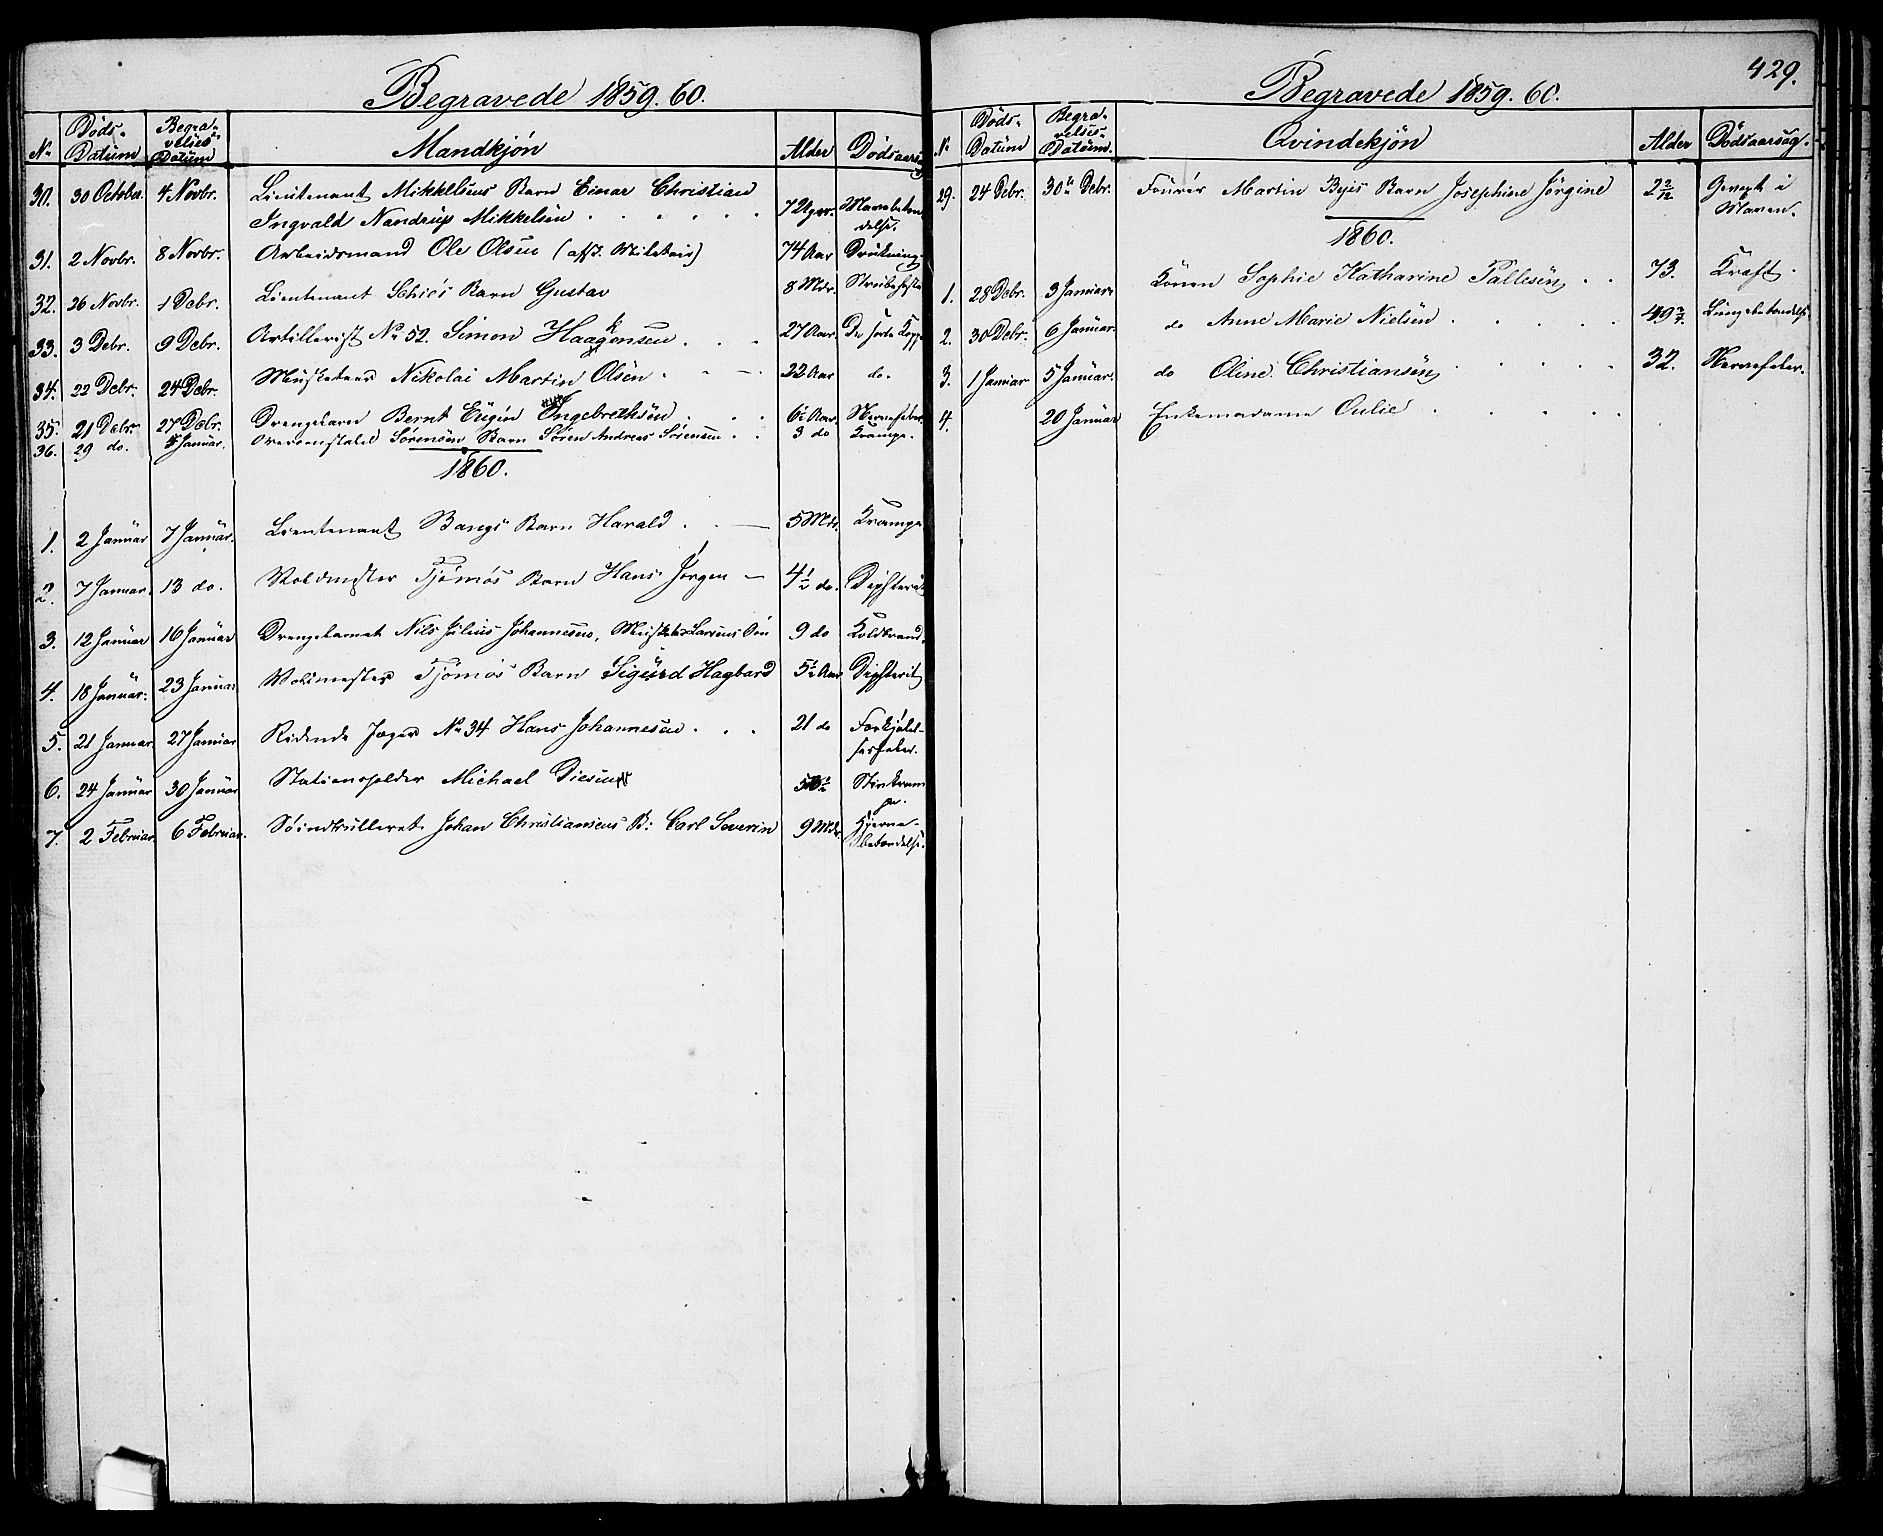 Begravede 1859. 60.
No Döds- Datum Begravelses Datum Mandkjön Alder Dödsaarsag
30. 30 October 4 Novbr. Lieutenant Mikkelsens Barn Einar Christian
Ingvald Nandrup Mikkelsen 7 Uger. Mavebetændelse.
31. 2 Novbr. 8 Novbr. Arbeidsmand Ole Olsen (afsk. Militair) 74 Aar Drukning.
32. 26 Novbr. 1 Debr. Lieutenant Schiös Barn Gustav 8 Mdr. Strubehoste
33. 3 Debr. 9 Debr. Artillerist No 52. Simon Haagensen 27 Aar De sorte Kopper
34. 22 Debr. 24 Debr. Musketeer Nikolai Martin Olsen 22 Aar do.
35. 21 Debr. 27 Debr. Drengebarn Bernt Eugen Engebrethsen 6½ Aar Nervefeber
36. 29 do. 4 Januar. Sörensen Barn Sören Andreas Sörensen 3 do Krampe.
1860.
1. 2 Januar 7 Januar. Lieutenant Bangs Barn Harald 5 Mdr. Krampe
2. 7 Januar. 13 do. Voldmester Tjömös Barn Hans Jörgen 4½ do. Diphterit
3. 12 Januar 16 Januar Drengebarnet Nils Julius Johannesen, Musketeer Larsens Sön 9 do Koldbrand.
4. 18 Januar. 23 Januar Voldmester Tjömös Barn Sigurd Hagbard 5½ Aar Diphterit
5. 21 Januar. 27 Januar Ridende Jæger No 34 Hans Johannesen 21 do Forkjölelsesfeber.
6. 24 Januar 30 Januar Stationsholder Michael Stivkrampe.
7. 2 Februar. 6 Februar. Söindrulleret Johan Christiansens B: Carl Severin 9 Mdr. Hjernebetændelse.
429.
Begravede 1859. 60.
No Döds- Datum Begravelses- Datum. Qvindekjön Alder Dödsaarsag.
29. 24 Debr. 30te Debr. Fourér Martin Byes Barn Josephine Jörgine 2 2/12 Gevext i Maven.
1860.
1. 28 Debr. 3 Januar Konen Sophie Katharine Pallesen 73. Kræft.
2. 30 Debr. 6 Januar. do Anne Marie Nielsen 49 Lungebetændelse.
3. 1 Januar 5 Januar. do Oline Christiansen 32. Nervefeber.
4. 20 Januar Enkemadame Oulie